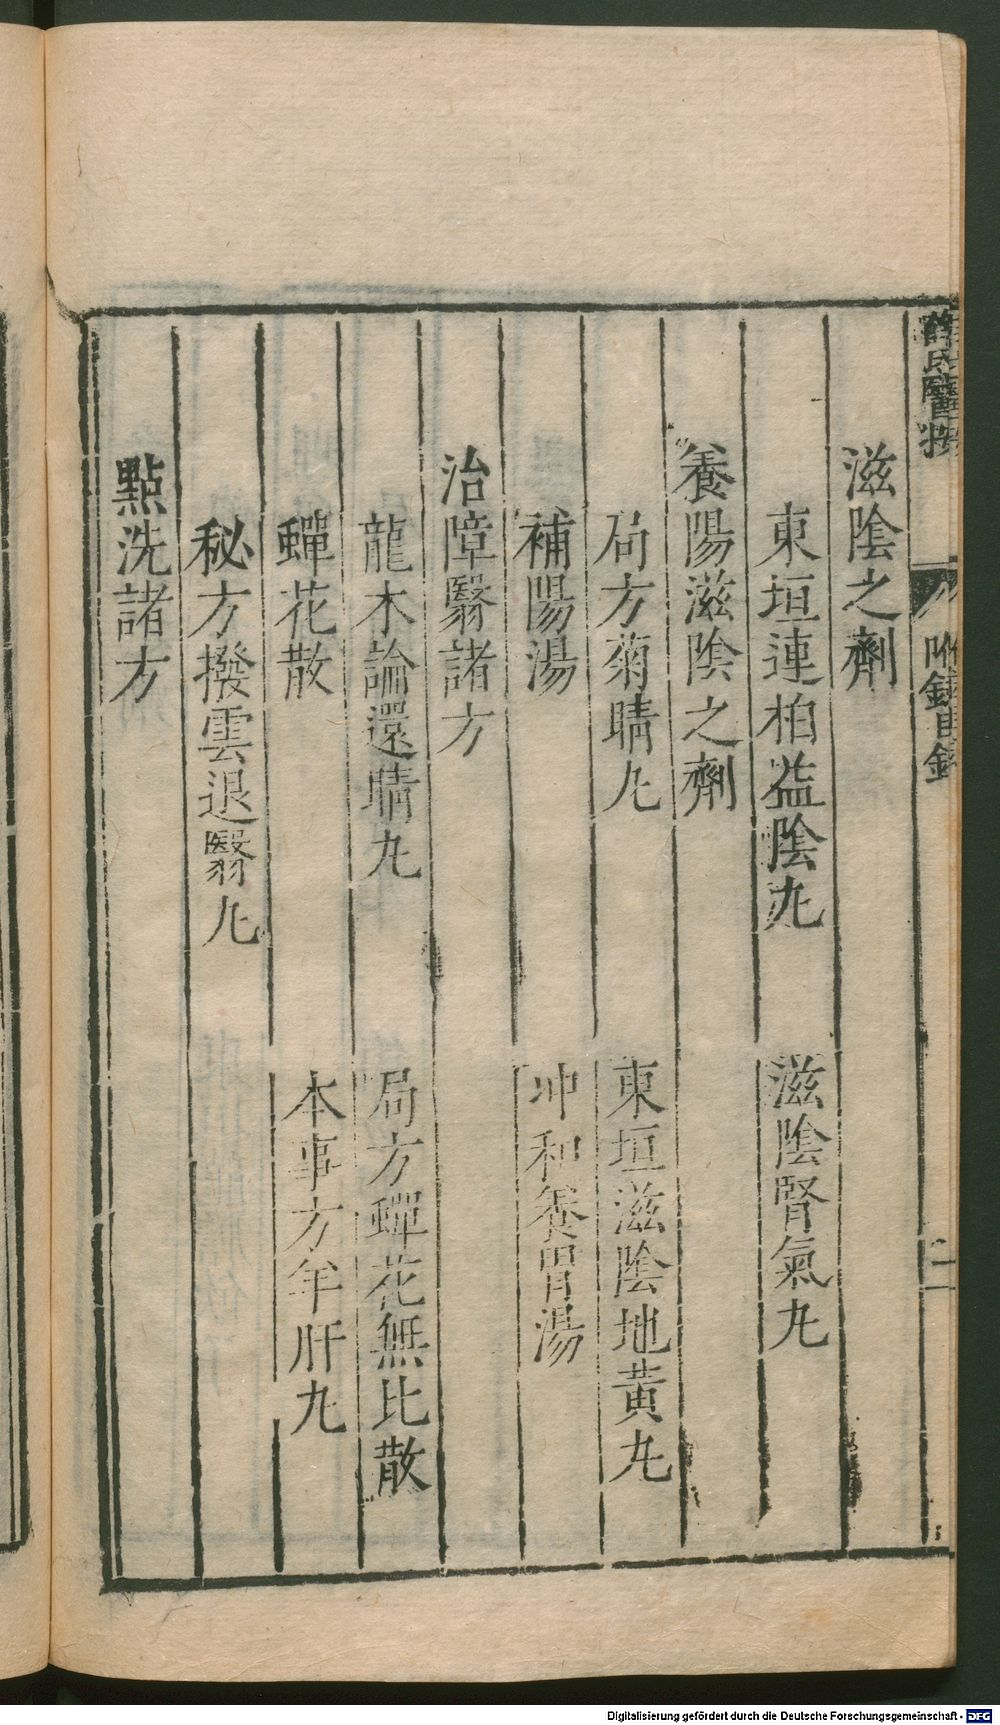 薛氏醫按
附録目録
二
滋陰之劑
東垣連柏益陰丸　滋陰腎氣丸
養陽滋陰之劑
局方菊睛丸　東垣滋陰地黃丸
補陽湯　冲和養胃湯
治障翳諸方
龍木論還睛丸　局方蟬花無比散
蟬花散　本事方羊肝丸
秘方撥雲退翳丸
點洗諸方
Digitalisierung gefördert durch die Deutsche Forschungsgemeinschaft - DFG